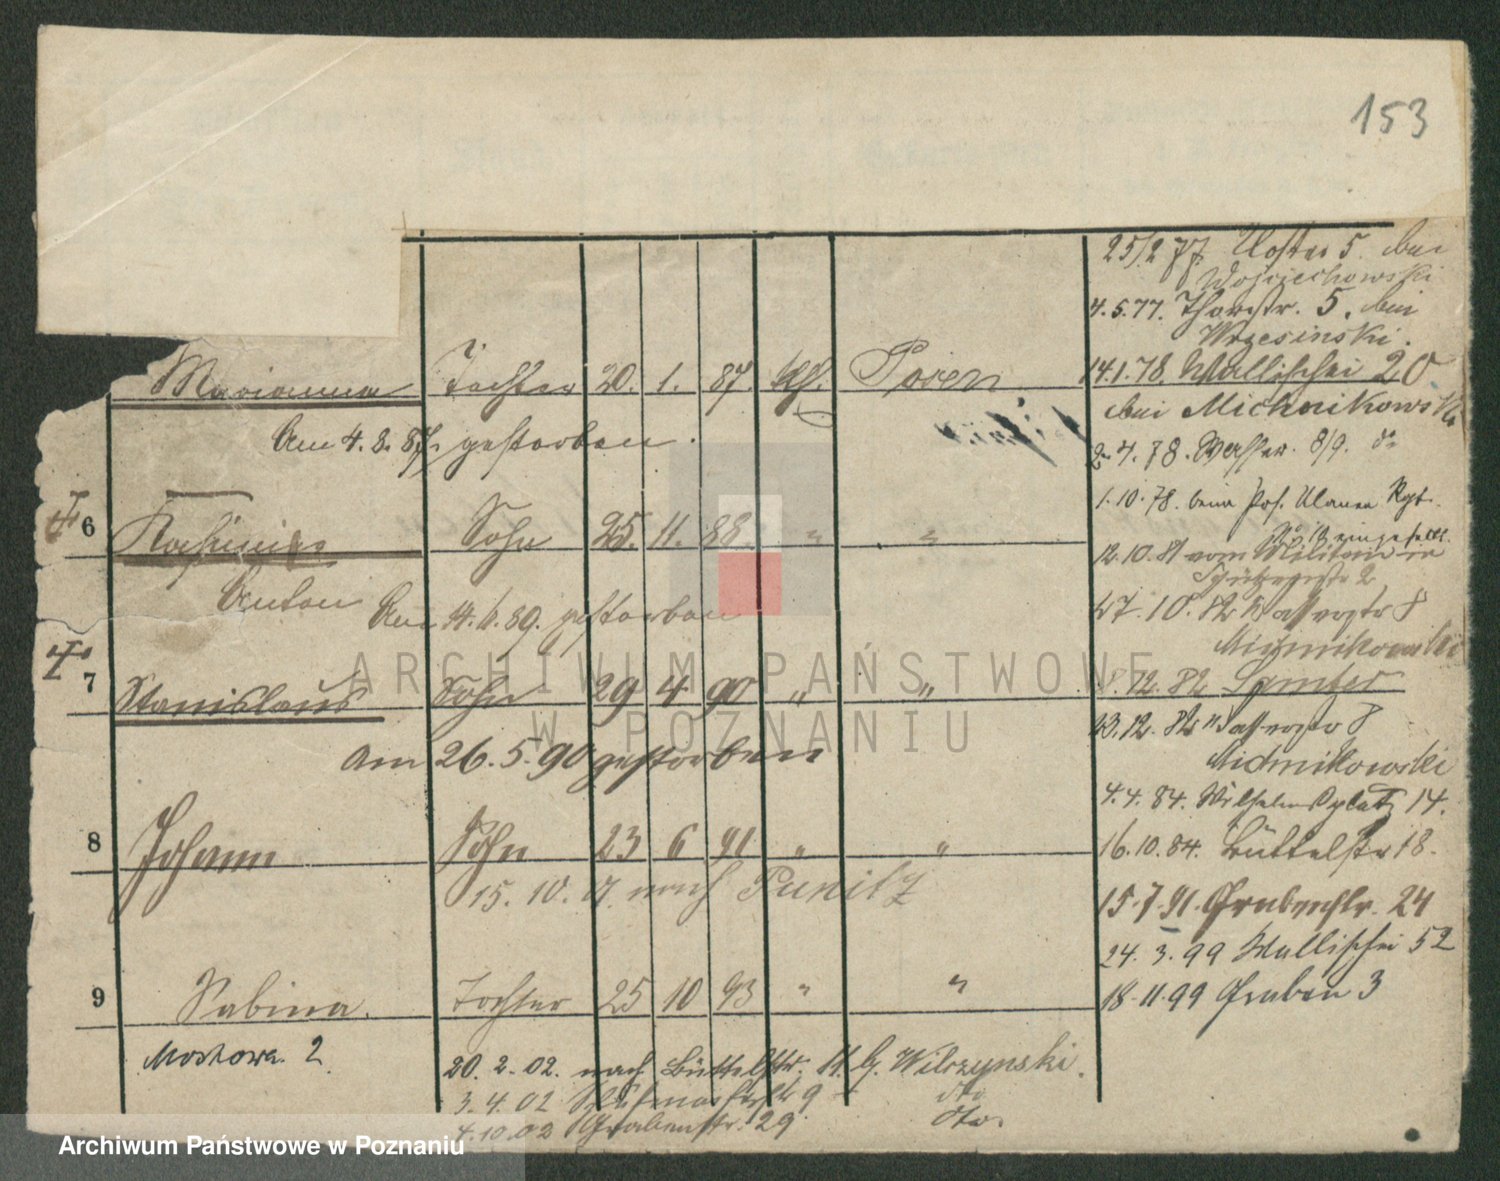 153
25/2 77. Kloster 5. bei
Wojciechowski
4.5.77. Thorstr. 5. bei
Wrzesinski.
Marianna Tochter 20. 1. 87. kth. Posen
14.1.78. Wallischei 20
bei Michnikowski
Am 4. 8. 87. gestorben.
2. 4. 78. Wasser. 8/9. do
1.10.78. beim Pos. Ulanen Rgt.
No 10 eingestellt.
6 Kasimir Sohn 25. 11. 88. " "
12.10.81 vom Militair in
Schützenstr 2
Anton Am 14. 1. 89. gestorben
27.10.82 Wasserstr 8
Michnikowski
7 Stanislaus Sohn 29 4 90 " "
8. 12. 82
23.12.82 Wasserstr 8
Michnikowski
Am 26. 5. 90 gestorben
4.4.84. Wilhelmsplatz 14.
8 Johann Sohn 23 6 91 " "
16.10.84. Büttelstr 18.
15. 10. nach Punitz
15.7.91. Grabenstr. 24
24. 3. 99 Wallischei 52
9 Sabina. Tochter 25 10 93 " "
18.11.99 Graben 3
Moskowa. 2
20. 2. 02. nach Büttelstr. 11. b. Wilczynski.
3.4.02 9 dto
4.10.02 Grabenstr. 29 dto.
ARCHIWUM PAŃSTWOWE
W POZNANIU
Archiwum Państwowe w Poznaniu